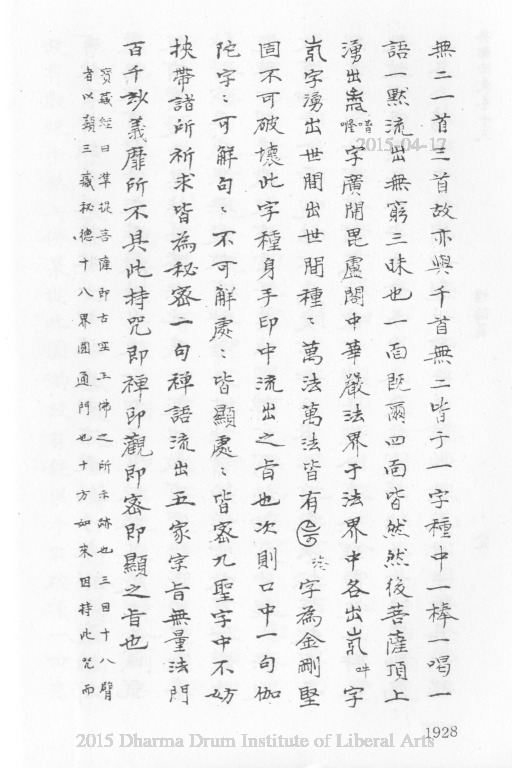 無二一首三首故亦與千首無二皆于一字種中一棒一喝一
語一默流出無窮三昧也一面既爾四面皆然然後菩薩頂上
湧出字廣開毘盧閣中華嚴法界于法界中各出吽字
字湧出世間出世間種〻萬法萬法皆有字為金剛堅
固不可破壞此字種身手印中流出之旨也次則口中一句伽
陀字〻可解句〻不可解處〻皆顯處〻皆密九聖字中不妨
挾帶諸所祈求皆為秘密一句禪語流出五家宗旨無量法門
百千玅義靡所不具此持咒即禪即觀即密即顯之旨也
寶藏經曰準提菩薩即古空王佛之所示跡也三目十八臂
者以顯三藏秘德、十八界圓通門也十方如來因持此咒而
2015-04-17
1928
2015 Dharma Drum Institute of Liberal Arts